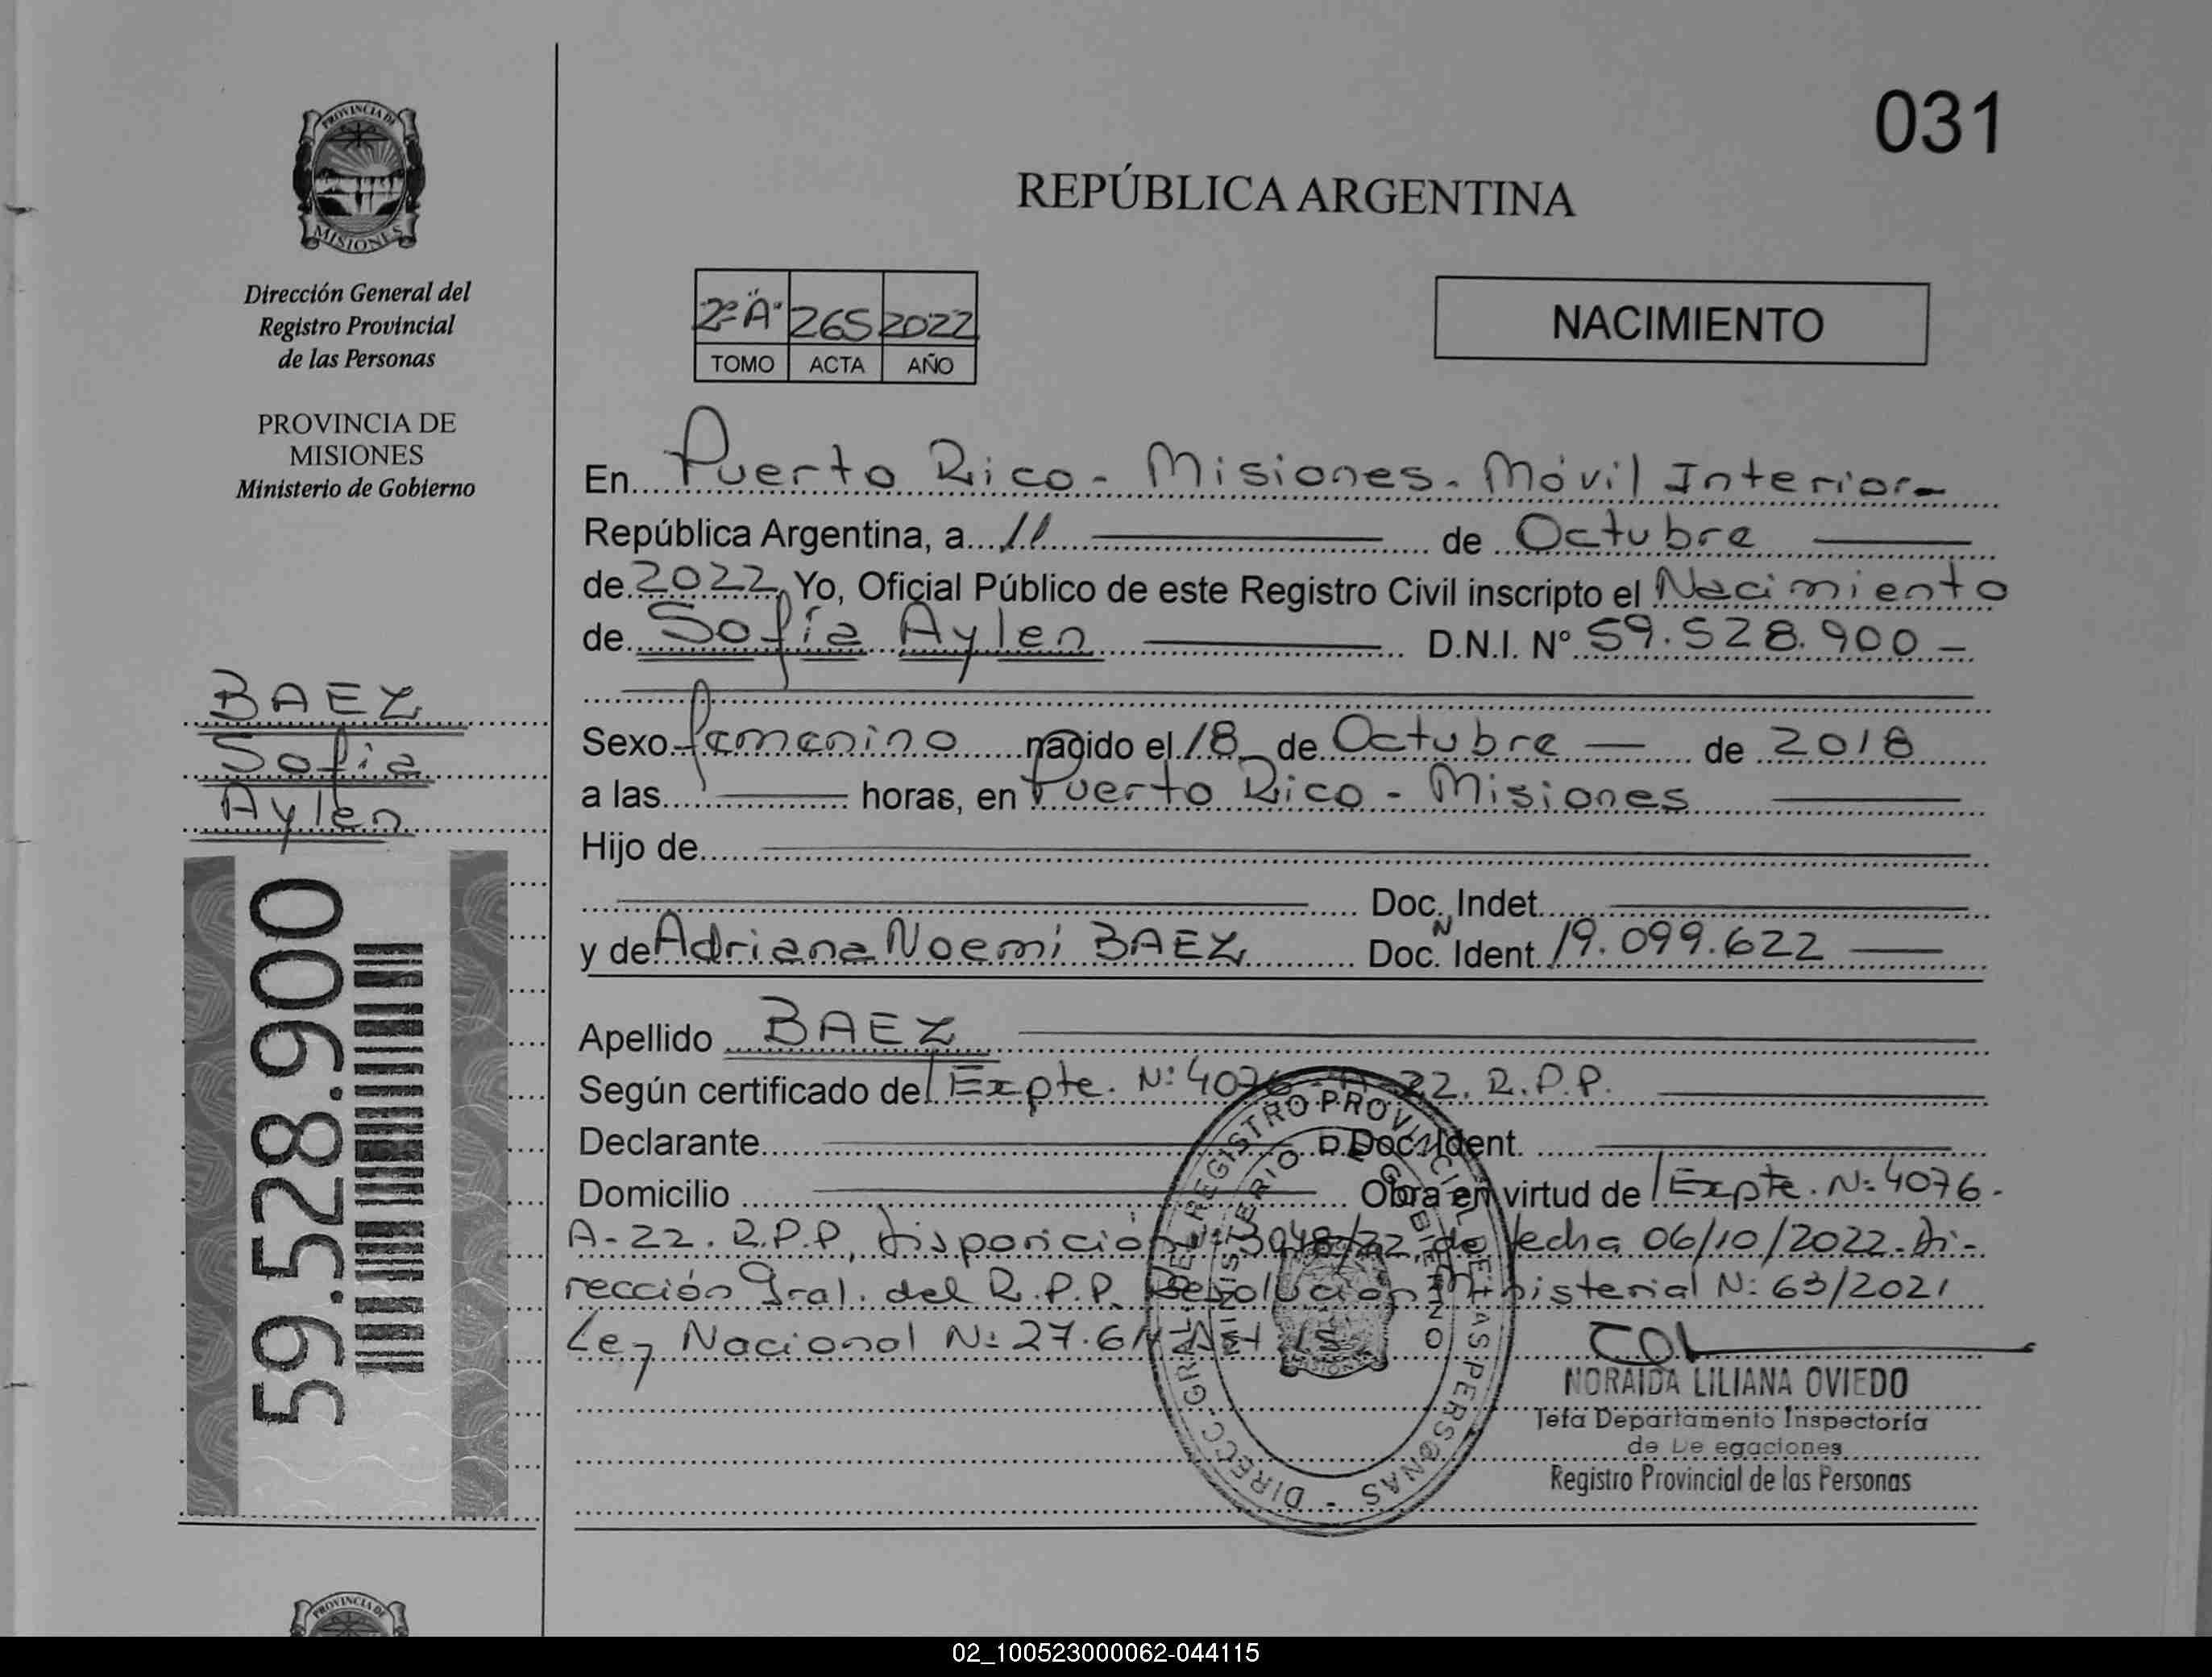 031
PROVINCIA DE
MISIONES
Dirección General del
Registro Provincial
de las Personas
PROVINCIA DE
MISIONES
Ministerio de Gobierno
REPÚBLICA ARGENTINA
2º "A" 265 2022
TOMO ACTA AÑO
NACIMIENTO
En Puerto Rico - Misiones. Móvil Interior
República Argentina, a 11 de Octubre
de 2022, Yo, Oficial Público de este Registro Civil inscripto el Nacimiento
de Sofía Aylen D.N.I. Nº 59.528.900
Sexo femenino nacido el 18 de Octubre de 2018
a las horas, en Puerto Rico - Misiones
Hijo de
Doc. Indet.
y de Adriana Noemi BAEZ Doc. N Ident. 19.099.622
Apellido BAEZ
Según certificado de Expte. Nº 4076 - A-22. R.P.P.
Declarante Doc. Ident.
Domicilio Obra en virtud de Expte. Nº 4076.
A-22. R.P.P, Disposición Nº 3048/22, de fecha 06/10/2022. Di-
rección Gral. del R.P.P. Resolución Ministerial Nº 63/2021
Ley Nacional Nº 27.61
NORAIDA LILIANA OVIEDO
Jefa Departamento Inspectoría
de De egaciones
Registro Provincial de las Personas
DIRECC. GRAL. DEL REGISTRO PROVINCIAL DE LAS PERSONAS
MINISTERIO DE GOBIERNO
BAEZ
Sofía
Aylen
59.528.900
PROVINCIA DE
02_100523000062-044115